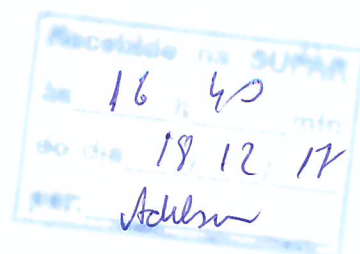 Recebido na SUPAR
às 16 h 40 min
do dia 18 12 17
por: Adelson